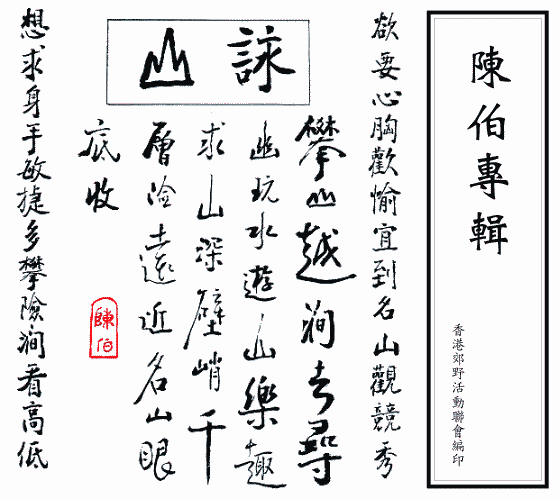 陳伯專輯
香港郊野活動聯會編印
欲要心胸歡愉宜到名山觀競秀
詠山
攀山越澗去尋
幽玩水遊山樂趣
求山深壁峭千
層險遠近名山眼
底收
陳伯
想求身手敏捷多攀險澗看高低